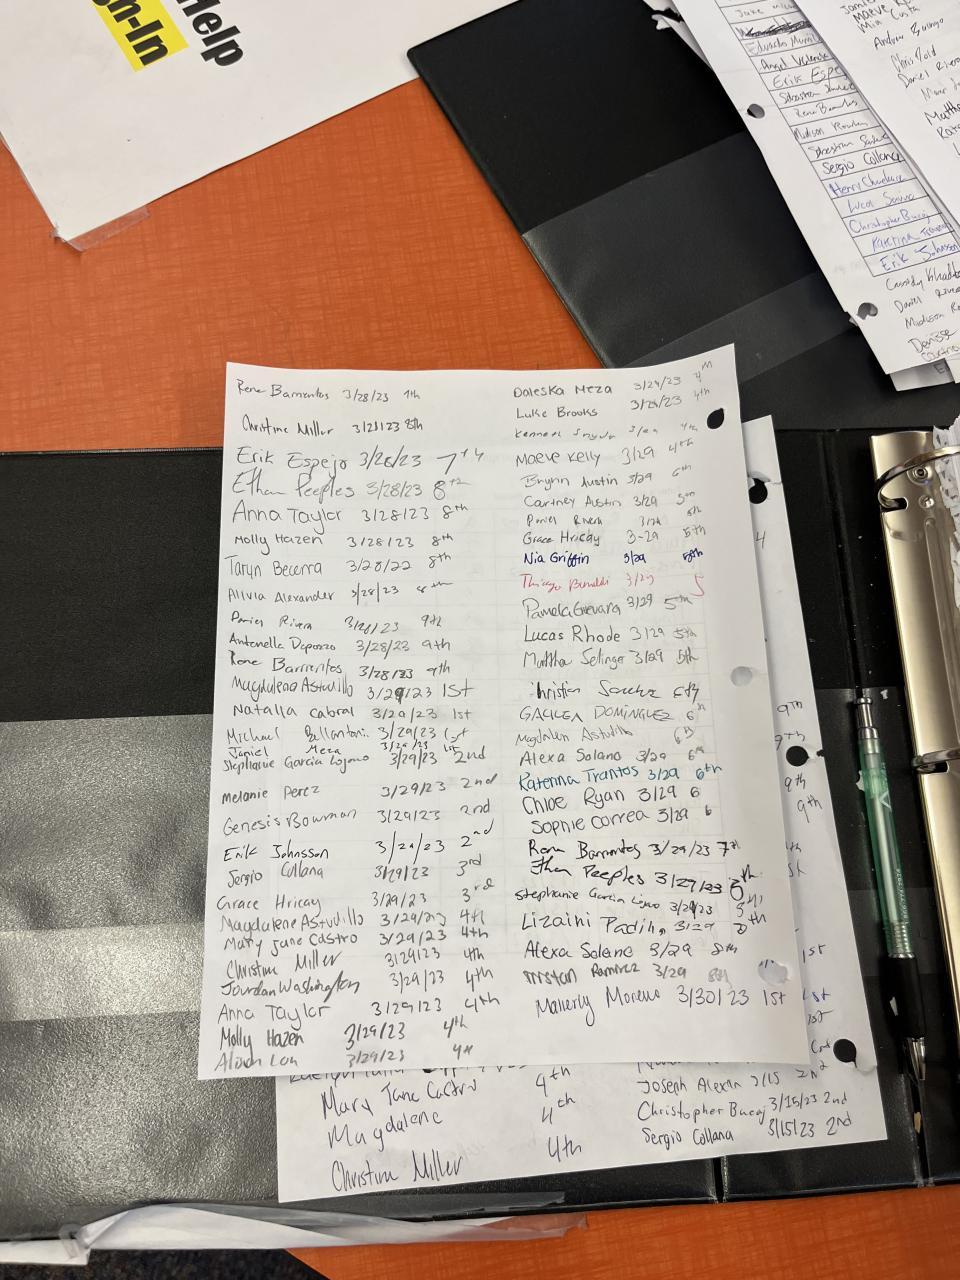 Help
gn-In
Rene Barrientos 3/28/23 9th
Christine Miller 3/28/23 8th
Erik Espejo 3/28/23 7th
Ethan Peeples 3/28/23 8th
Anna Taylor 3/28/23 8th
Molly Hazen 3/28/23 8th
Taryn Becerra 3/28/22 8th
Alivia Alexander 3/28/23 8th
Daniel Rivera 3/28/23 9th
Antonella 3/28/23 9th
Rene Barrientos 3/28/23 9th
Magdalena Astudillo 3/29/23 1st
Natalia Cabral 3/29/23 1st
Michael Bellantoni 3/29/23 1st
Janiel Meza 3/29/23 1st
Stephanie Garcia Lojano 3/29/23 2nd
Melanie Perez 3/29/23 2nd
Genesis Bowman 3/29/23 2nd
Erik Johnsson 3/29/23 2nd
Sergio Collana 3/29/23 3rd
Grace Hricay 3/29/23 3rd
Magdalene Astudillo 3/29/23 4th
Mary Jane Castro 3/29/23 4th
Christine Miller 3/29/23 4th
Jourdan Washington 3/29/23 4th
Anna Taylor 3/29/23 4th
Molly Hazen 3/29/23 4th
3/29/23 4th
Daleska Meza 3/29/23 4th
Luke Brooks 3/29/23 4th
Kenneth 3/29 4th
Maeve Kelly 3/29 4th
Austin 3/29
Cartney Austin 3/29 5th
Daniel Rivera 3/29 5th
Grace Hricay 3-29 5th
Nia Griffin 3/29 5th
Thiago 3/29 5
Pamela Guevara 3/29 5th
Lucas Rhode 3/29 5th
Mattha 3/29 5th
Christian Sanchez 6th
GALILEA DOMINGUEZ 6th
Magdalen Astudillo 6th
Alexa Solano 3/29 6th
Katerina Trantos 3/29 6th
Chloe Ryan 3/29 6
Sophie Correa 3/29 6
Rene Barrientos 3/29/23 7th
Ethan Peeples 3/29/23 8th
Stephanie Garcia Lojano 3/29/23 8th
Lizaini Padilla 3/29 8th
Alexa Solano 3/29 8th
Tristan Ramirez 3/29 8th
Mallerly Moreno 3/30/23 1st
Mary Jane Castro 4th
Magdalene 4th
Christine Miller 4th
Joseph 3/15 2nd
Christopher Bucaj 3/15/23 2nd
Sergio Collana 3/15/23 2nd
4
9th
9th
9th
9th
4th
st
1st
1st
1st
Eduardo
Angel
Erik Espejo
Sebastian
Rene Barrientos
Madison
Sebastian
Sergio Collana
Henry
Lucas
Christopher Bucaj
Katerina
Erik Johnsson
Cassidy
Daniel River
Madison
Denisse
Maeve
Mia Costa
Andrew
Chris
Daniel River